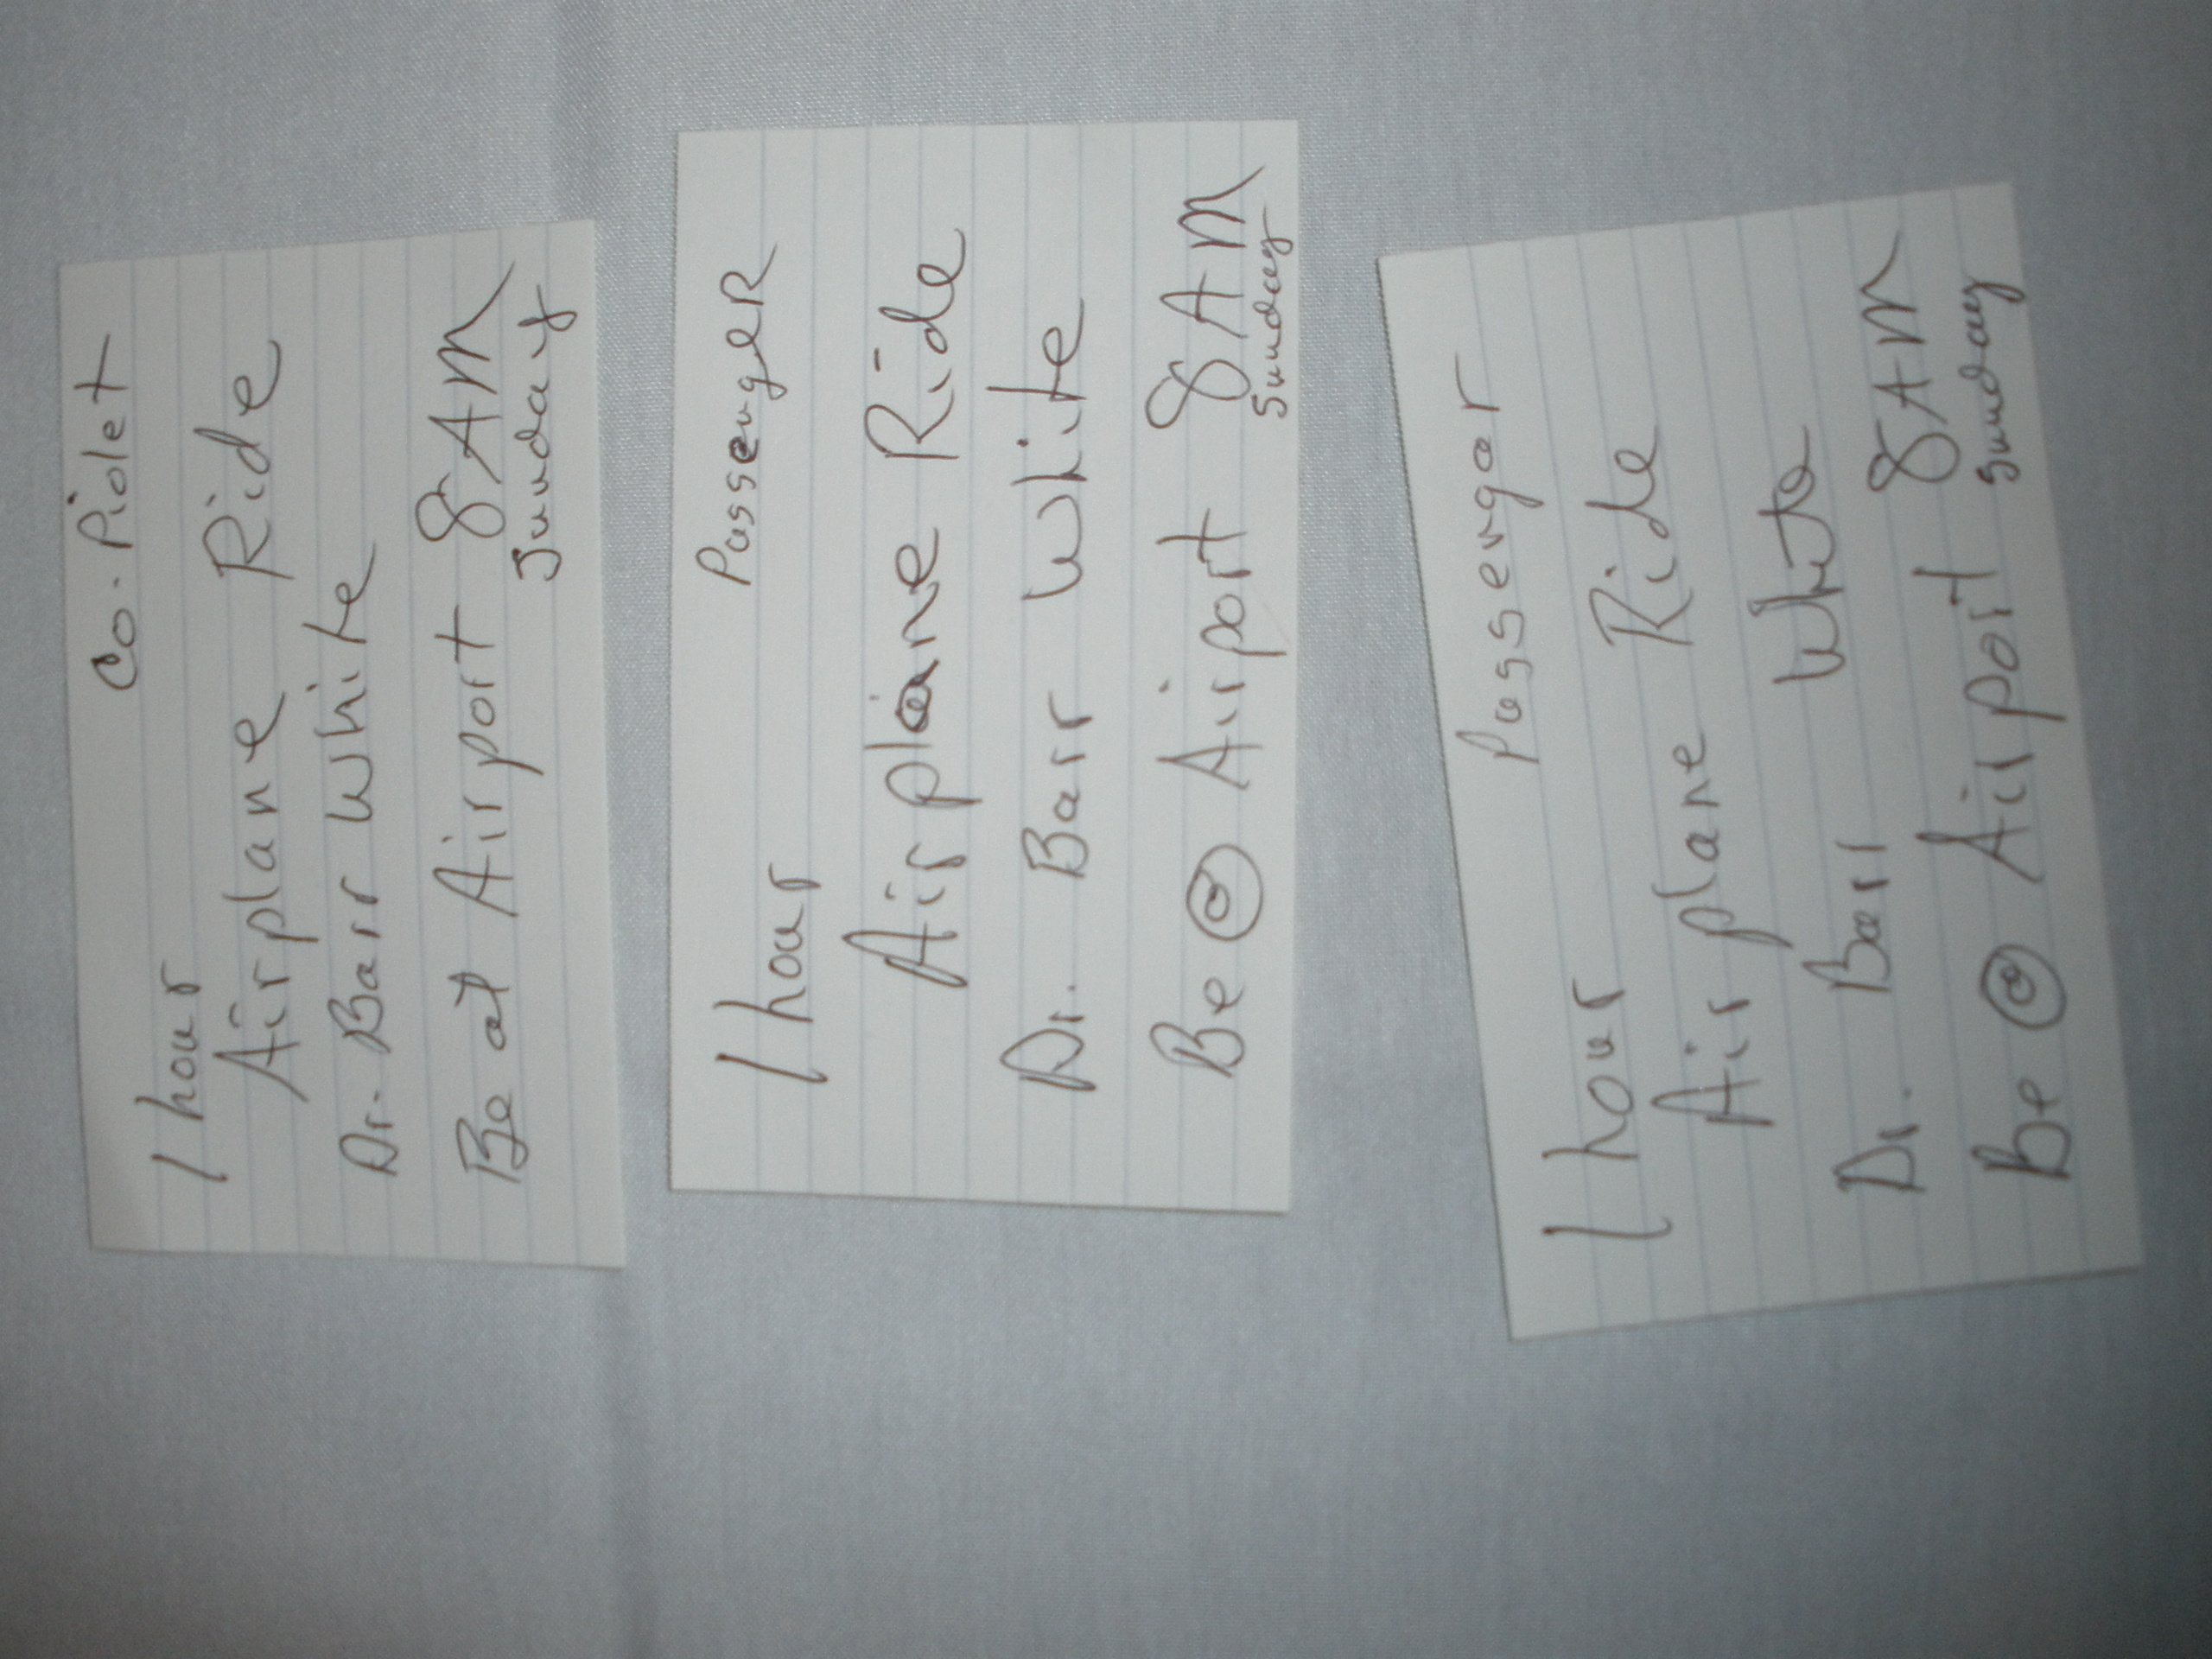 Co. Piolet
1 hour
Airplane Ride
Dr. Barr White
Be at Airport 8 AM
Sunday
PassengeR
1 hour
Airplane Ride
Dr. Barr White
Be @ Airport 8 AM
Sunday
Passengar
1 hour
Airplane Ride
Dr. Barr White
Be @ Airport 8 AM
Sunday